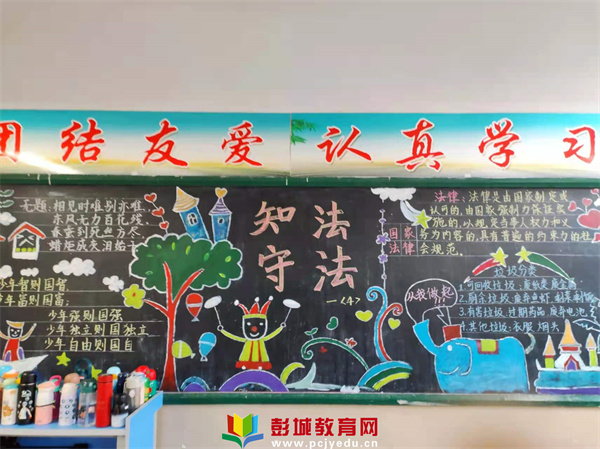 团结友爱 认真学习
无题：相见时难别亦难
东风无力百花残
春蚕到死丝方尽
蜡炬成灰泪始干
少年智则国智
少年富则国富
少年强则国强
少年独立则国独立
少年自由则国自
知法
守法
法律：法律是由国家制定或
认可的，由国家强制力保证实
施的，以规定当事人权力和义
务力内容的，具有普遍的约束力的社
会规范。
国家
法律
从我做起
垃圾分类
1.可回收垃圾：
2.厨余垃圾
3.有害垃圾：过期药品 废弃电池
4.其他垃圾：衣服 烟头
彭城教育网
www.pcjyedu.cn